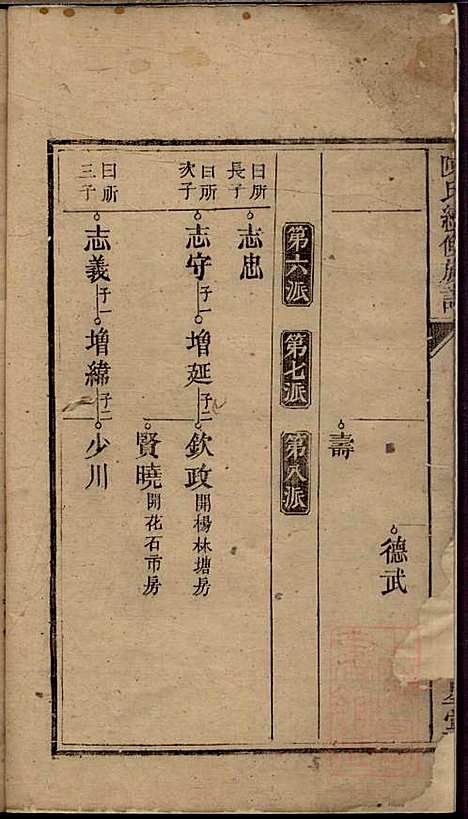 陳氏續修族譜
德武
壽
第六派 第七派 第八派
曰所長子 志忠
曰所次子 志守 子一 增延 子二 欽政 開楊林塘房
賢曉 開花石市房
曰所三子 志義 子一 增緯 子二 少川